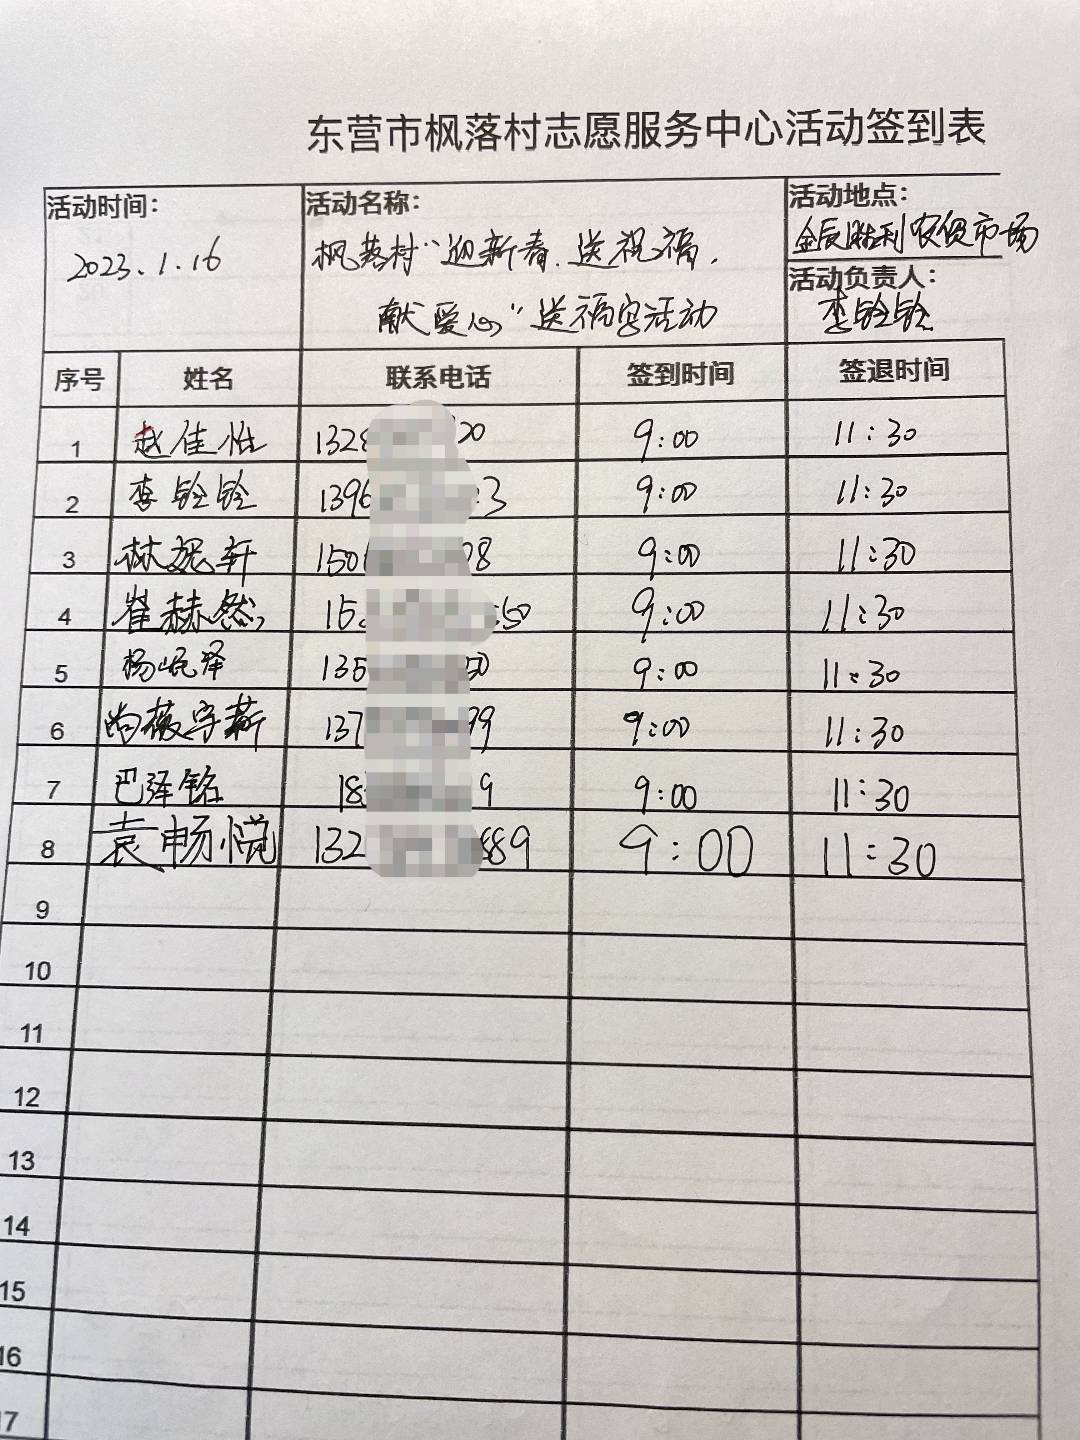 东营市枫落村志愿服务中心活动签到表
活动时间：
2023.1.16
活动名称：
枫落村“迎新春、送祝福、
献爱心”送福字活动
活动地点：
金辰胜利农贸市场
活动负责人：
李铨铨
序号 姓名 联系电话 签到时间 签退时间
1 赵佳怡 132 20 9:00 11:30
2 李铨铨 139 3 9:00 11:30
3 林 轩 150 8 9:00 11:30
4 崔赫然 15 50 9:00 11:30
5 杨岷泽 135 0 9:00 11:30
6 尚薇宇 137 99 9:00 11:30
7 巴泽铭 18 9 9:00 11:30
8 袁畅悦 132 889 9:00 11:30
9
10
11
12
13
14
15
16
17